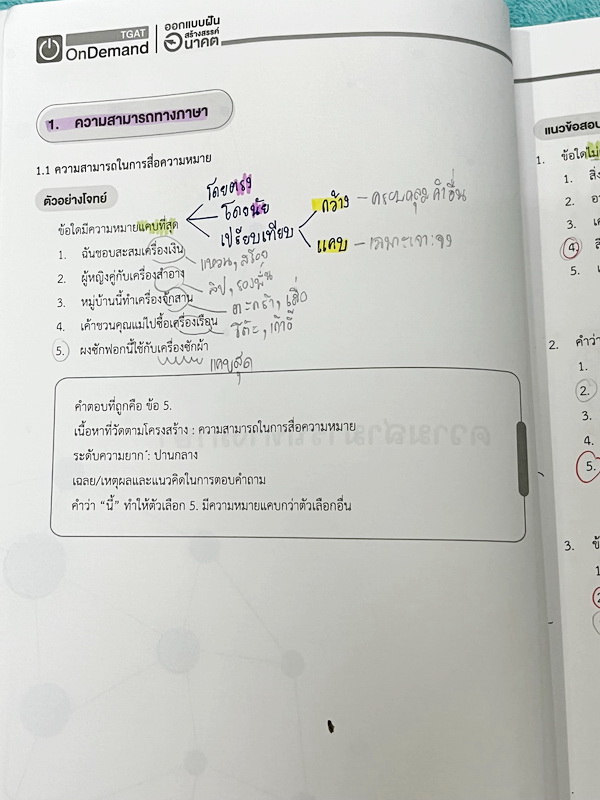 TGAT
OnDemand
ออกแบบฝัน
สร้างสรรค์
อนาคต
1. ความสามารถทางภาษา
1.1 ความสามารถในการสื่อความหมาย
ตัวอย่างโจทย์
ข้อใดมีความหมายแคบที่สุด
โดยตรง
โดยนัย
เปรียบเทียบ
กว้าง - ครอบคลุมคำอื่น
แคบ - เฉพาะเจาะจง
1. ฉันชอบสะสมเครื่องเงิน
แหวน, สร้อย
2. ผู้หญิงคู่กับเครื่องสำอาง
ลิป, รองพื้น
3. หมู่บ้านนี้ทำเครื่องจักสาน
ตะกร้า, เสื่อ
4. เค้าชวนคุณแม่ไปซื้อเครื่องเรือน
โต๊ะ, เก้าอี้
5. ผงซักฟอกนี้ใช้กับเครื่องซักผ้า
แคบสุด
คำตอบที่ถูกคือ ข้อ 5.
เนื้อหาที่วัดตามโครงสร้าง : ความสามารถในการสื่อความหมาย
ระดับความยาก : ปานกลาง
เฉลย/เหตุผลและแนวคิดในการตอบคำถาม
คำว่า “นี้” ทำให้ตัวเลือก 5. มีความหมายแคบกว่าตัวเลือกอื่น
แนวข้อสอบ
1. ข้อใดไม่
1. สิ่
2.
3.
4.
5.
2. คำว่า
1.
2.
3.
4.
5.
3.